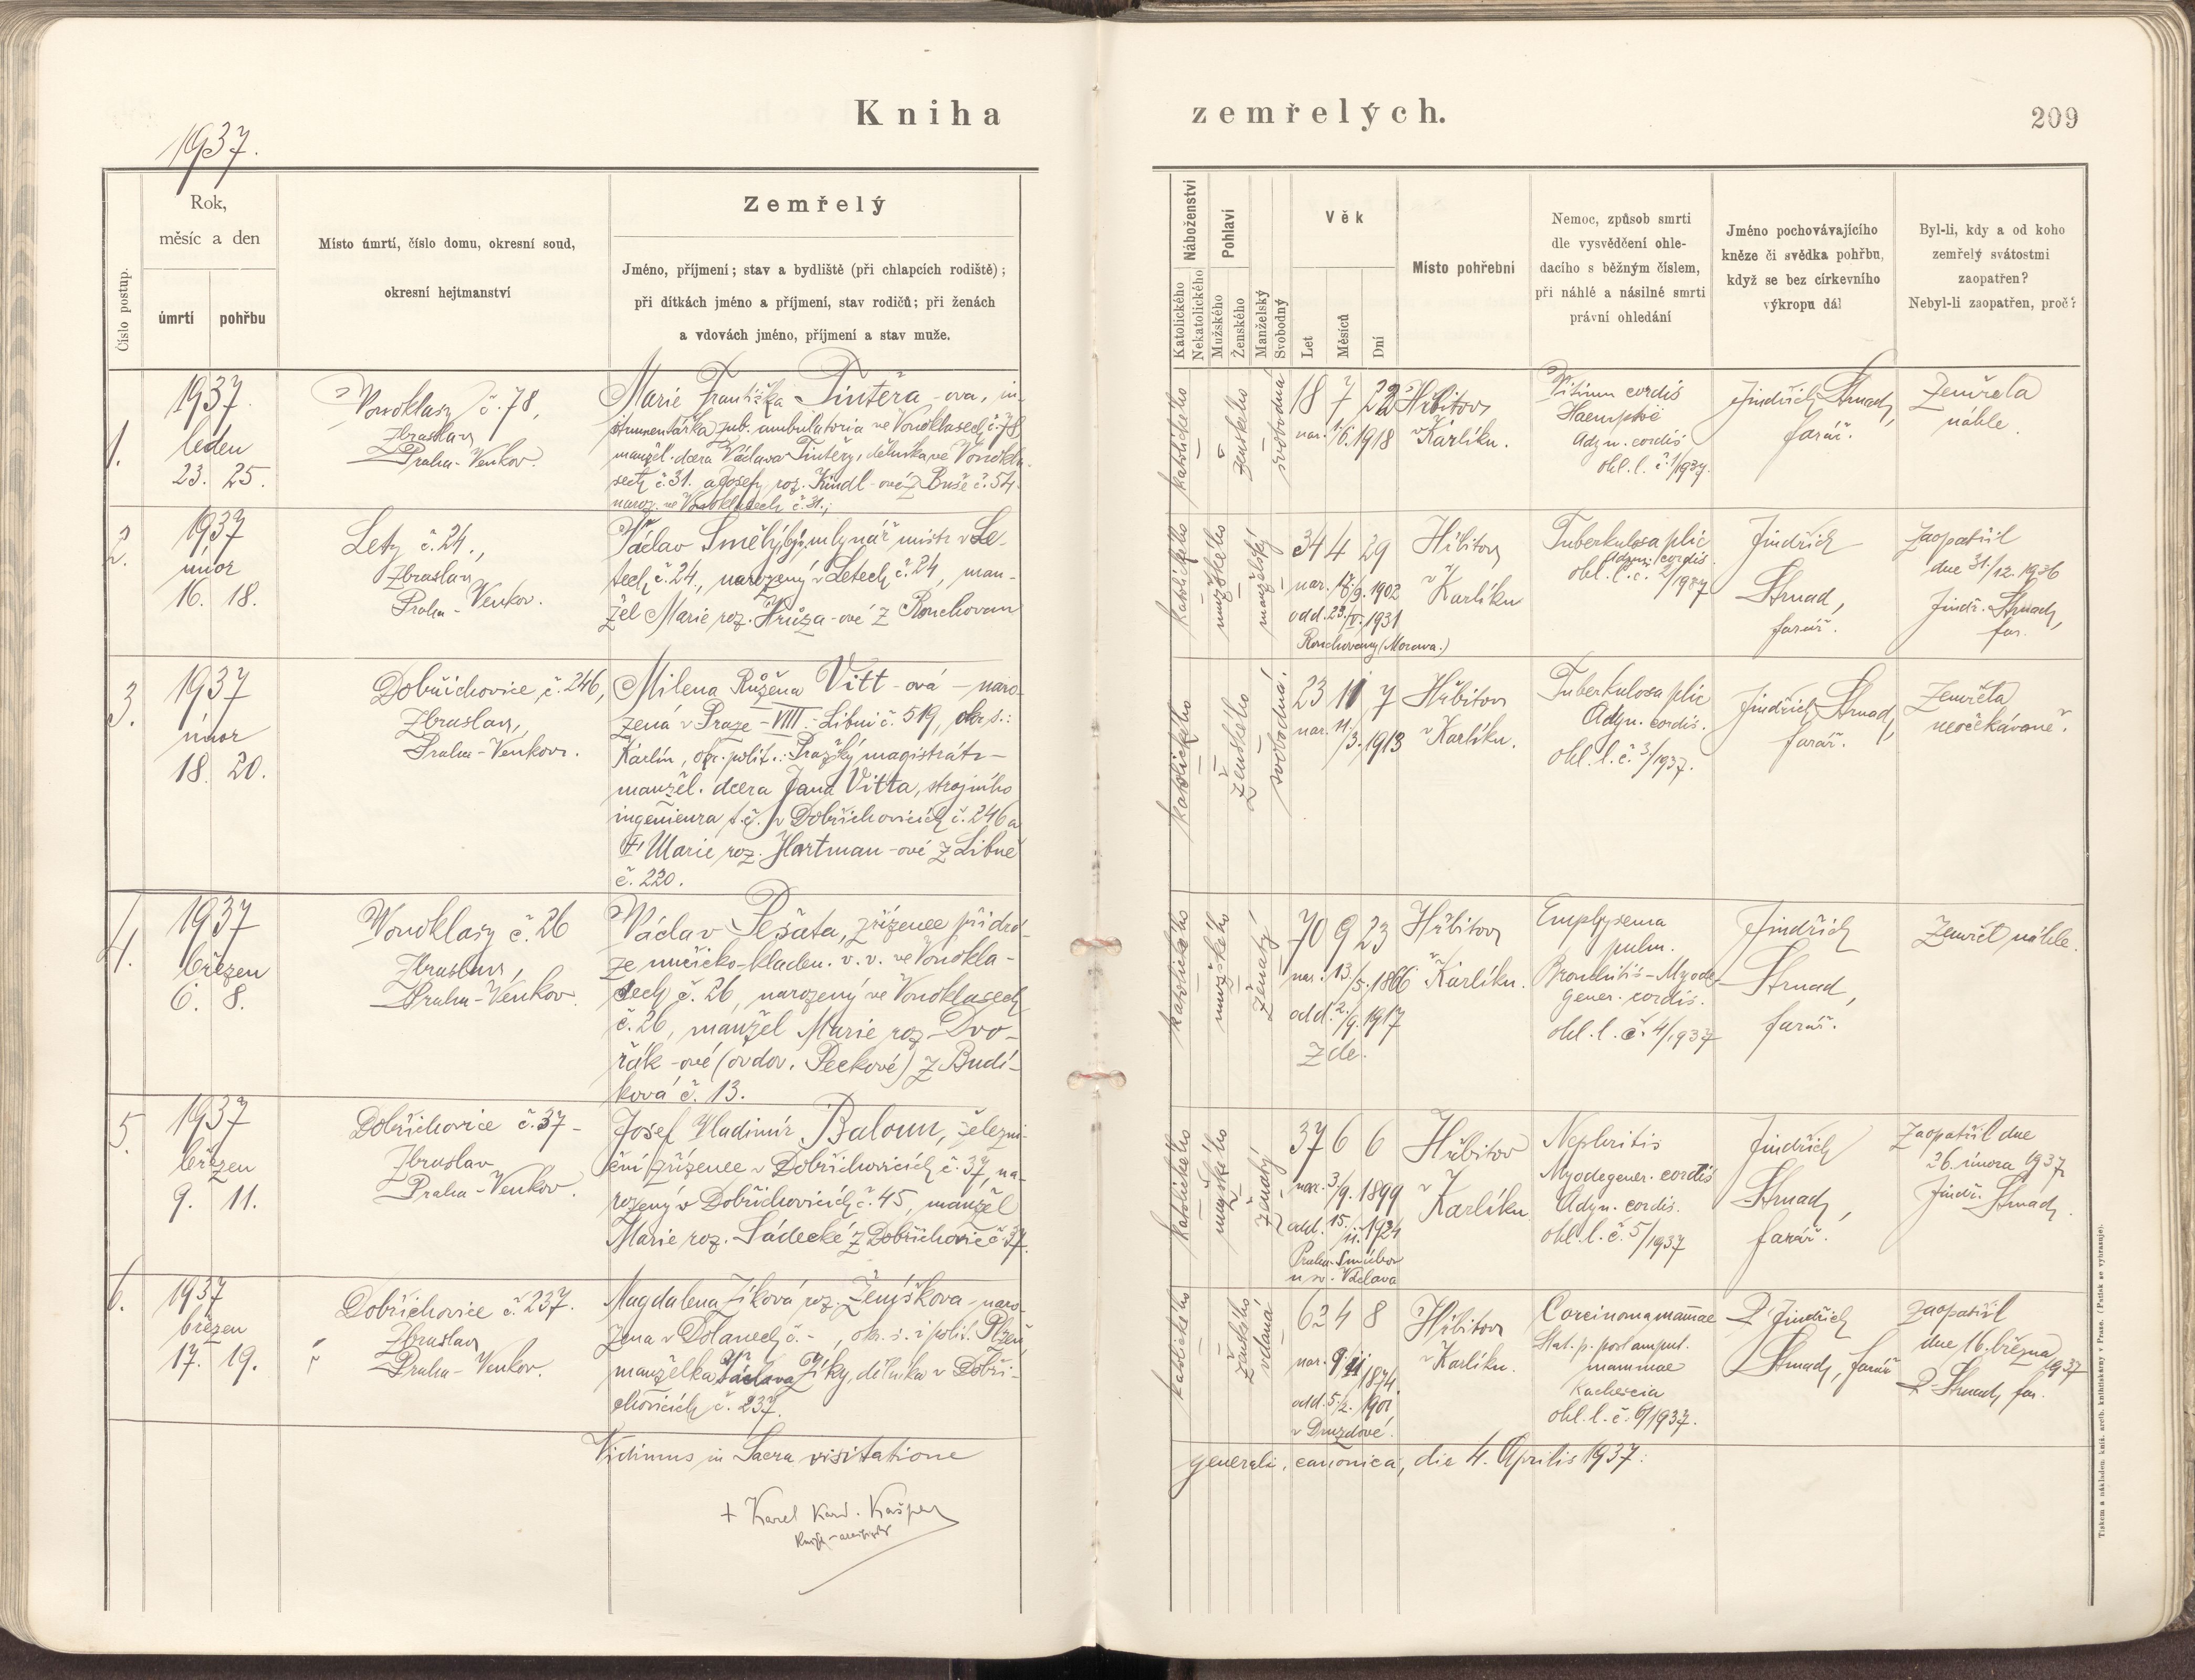 Kniha zemřelých.
209
1937.
Číslo postup.
Rok,
měsíc a den
úmrtí
pohřbu
Místo úmrtí, číslo domu, okresní soud,
okresní hejtmanství
Zemřelý
Jméno, příjmení; stav a bydliště (při chlapcích rodiště);
při dítkách jméno a příjmení, stav rodičů; při ženách
a vdovách jméno, příjmení a stav muže.
Náboženství
Katolického
Nekatolického
Pohlaví
Mužského
Ženského
Manželský
Svobodný
Věk
Let
Měsíců
Dní
Místo pohřební
Nemoc, způsob smrti
dle vysvědčení ohle-
dacího s běžným číslem,
při náhlé a násilné smrti
právní ohledání
Jméno pochovávajícího
kněze či svědka pohřbu,
když se bez církevního
výkropu dál
Byl-li, kdy a od koho
zemřelý svátostmi
zaopatřen?
Nebyl-li zaopatřen, proč?
1.
1937
leden
23. 25.
Vonoklasy č. 78,
Zbraslav
Praha-Venkov.
Marie Františka Tintěra-ova, in-
strumentářka zub. ambulatoria ve Vonoklasech č. 78
manžel. dcera Václava Tintěry, dělníka ve Vonokla-
sech č. 31. a Josefy roz. Kindl-ové z Buše č. 54.
naroz. ve Vonoklasech č. 31.;
katolického
ženského
svobodná
18 7 22
nar. 1/6. 1918
Hřbitov
v Karlíku.
Vitium cordis
Haemptoë
Adyn. cordis
ohl. l. č. 1/1937.
Jindřich Strnad,
farář.
Zemřela
náhle.
2.
1937
únor
16. 18.
Lety č. 24.,
Zbraslav
Praha-Venkov.
Václav Smělý, mlynář mistr v Le-
tech č. 24., narozený v Letech č. 24, man-
žel Marie roz. Hrůza-ové z Rouchovan
katolického
mužského
manželský
34 4 29
nar. 18/9. 1902
odd. 23/V. 1931
Rouchovany (Morava.)
Hřbitov
v Karlíku
Tuberkulosa plic
Adyn. cordis.
ohl. l. č. 2/1937
Jindřich
Strnad,
farář.
Zaopatřil
dne 31/12. 1936
Jindř. Strnad,
far.
3.
1937
únor
18. 20.
Dobřichovice, č. 246,
Zbraslav,
Praha-Venkov.
Milena Růžena Vitt-ová - naro-
zená v Praze-VIII.-Libni č. 519, okr. s.:
Karlín, okr. polit.: Pražský magistrát-
manžel. dcera Jana Vitta, strojního
ingenieura t. č. v Dobřichovicích č. 246 a
Marie roz. Hartman-ové z Libně
č. 220.
katolického
ženského
svobodná.
23 11 7
nar. 11/3. 1913
Hřbitov
v Karlíku.
Tuberkulosa plic
Adyn. cordis.
ohl. l. č. 3/1937.
Jindřich Strnad,
farář.
Zemřela
neočekávaně.
4.
1937
březen
6. 8.
Vonoklasy č. 26
Zbraslav,
Praha-Venkov.
Václav Pešata, zřízenec při drá-
ze nučicko-kladen. v. v. ve Vonokla-
sech č. 26, narozený ve Vonoklasech
č. 26, manžel Marie roz. Dvo-
řák-ové (ovdov. Peckové) z Budí-
ková č. 13.
katolického
mužského
ženatý
70 9 23
nar. 13./5. 1866
odd. 2./9. 1917
zde.
Hřbitov
v Karlíku.
Emphysema
pulm.
Bronchitis-Myode-
gener. cordis.
ohl. l. č. 4/1937
Jindřich
Strnad,
farář.
Zemřel náhle.
5.
1937
březen
9. 11.
Dobřichovice č. 37-
Zbraslav
Praha-Venkov.
Josef Vladimír Baloun, železni-
ční zřízenec v Dobřichovicích č. 37, na-
rozený v Dobřichovicích č. 45, manžel
Marie roz. Sádecké z Dobřichovic č. 37.
katolického
mužského
ženatý
37 6 6
nar. 3/9. 1899
odd. 15./11. 1924
Praha-Smíchov
u sv. Václava
Hřbitov
v
Karlíku
Nephritis
Myodegener. cordis
Adyn. cordis.
ohl. l. č. 5/1937
Jindřich
Strnad,
farář.
Zaopatřil dne
26. února 1937
Jindř. Strnad
6.
1937
březen
17. 19.
Dobřichovice č. 237.
Zbraslav
Praha-Venkov.
Magdalena Zíková roz. Žemíškova, naro-
zena v Dolanech č. -, okr. s. i polit. Plzeň
manželka Václava Zíky, dělníka v Dobři-
chovicích č. 237.
katolického
ženského
vdaná
62 4 8
nar. 9/11 1874
odd. 5./2. 1901
v Druzdové.
Hřbitov
v Karlíku.
Carcinoma mammae
Stat. p. post amput.
mammae
Kachexia
ohl. l. č. 6/1937.
P. Jindřich
Strnad, farář
Zaopatřil
dne 16. března 1937
P. Strnad, far.
Vidimus in Sacra visitatione
generali, canonica, die 4. Aprilis 1937:
+ Karel Kard. Kašpar
Tiskem a nákladem kníž. arcib. knihtiskárny v Praze. (Patisk se vyhrazuje).